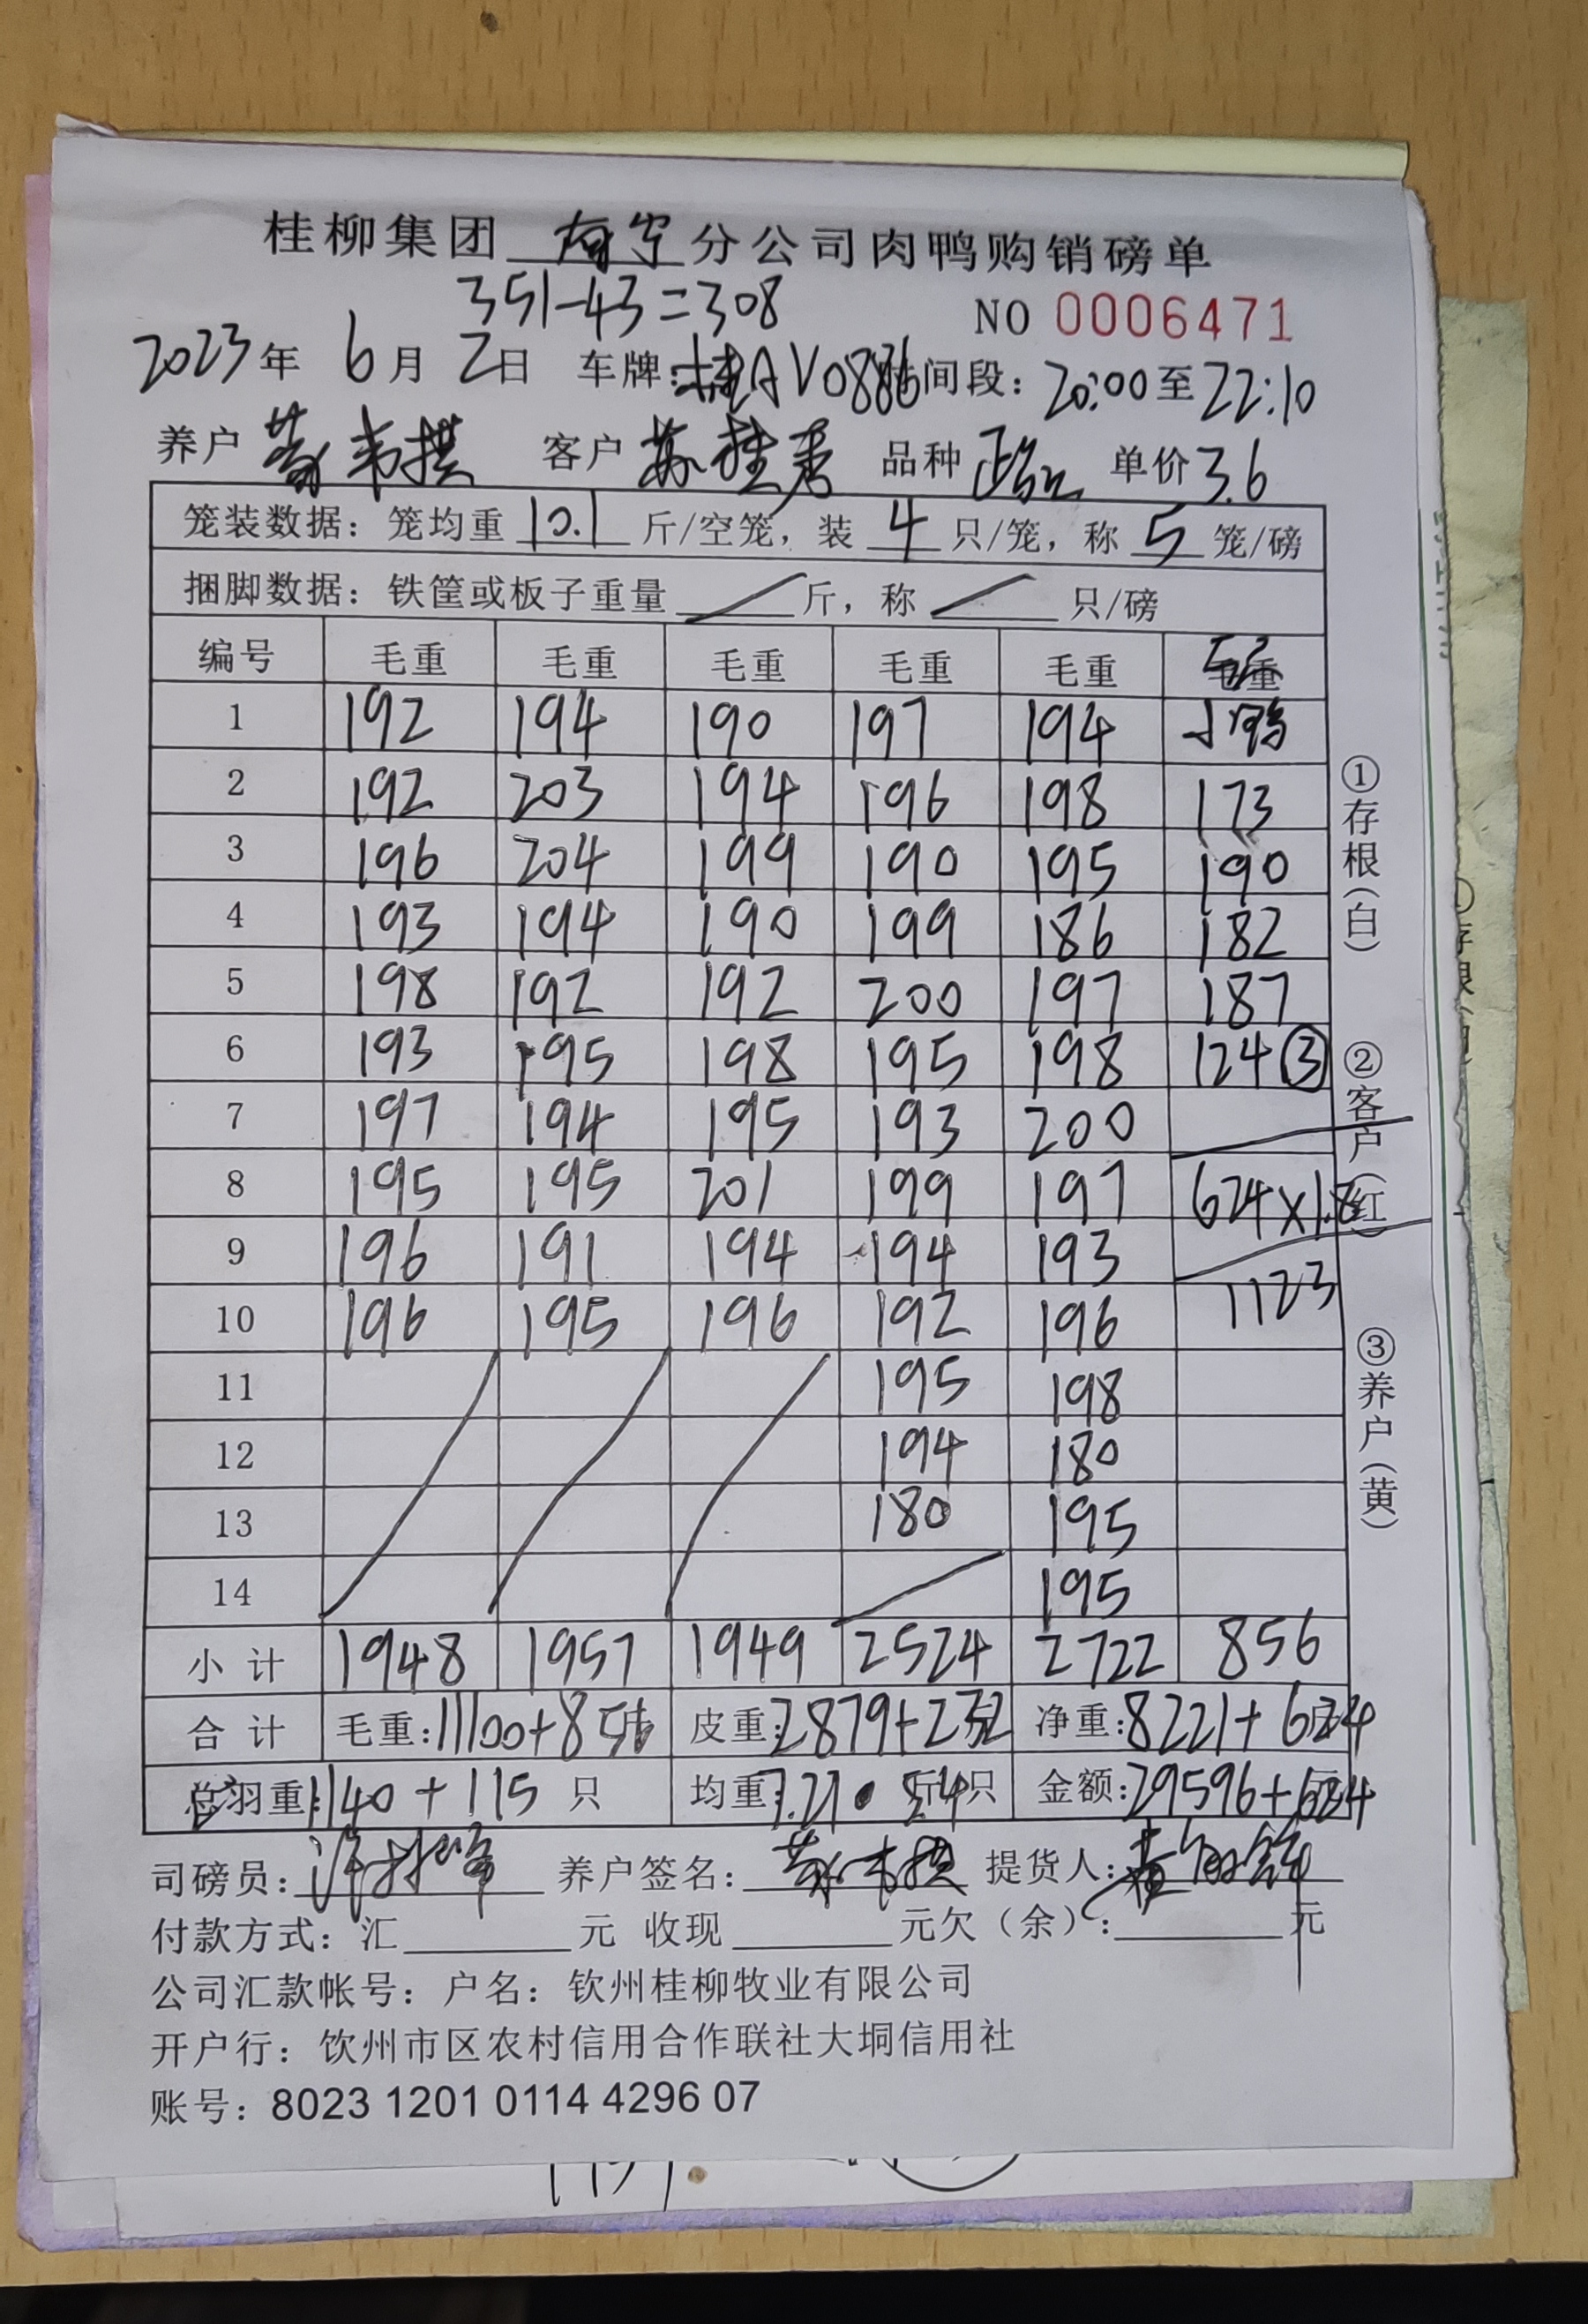 桂柳集团 南宁 分公司肉鸭购销磅单
351-43=308
NO 0006471
2023年 6月 2日 车牌:桂AV0886 时间段:20:00至22:10
养户 客户 苏桂秀 品种 单价3.6
笼装数据:笼均重 10.1 斤/空笼,装 4 只/笼,称 5 笼/磅
捆脚数据:铁筐或板子重量 / 斤,称 / 只/磅
编号 毛重 毛重 毛重 毛重 毛重 毛重
1 192 194 190 197 194 小鸭
2 192 203 194 196 198 173
3 196 204 199 190 195 190
4 193 194 190 199 186 182
5 198 192 192 200 197 187
6 193 195 198 195 198 124③
7 197 194 195 193 200
8 195 195 201 199 197 624×1.8
9 196 191 194 194 193
10 196 195 196 192 196 1123
11 195 198
12 194 180
13 180 195
14 195
小计 1948 1957 1949 2524 2722 856
合计 毛重:11100+856 皮重:2879+232 净重:8221+624
总羽重:1140+115 只 均重:7.21 5.4 斤/只 金额:29596+624
司磅员: 养户签名: 提货人:
付款方式:汇 元 收现 元欠(余): 元
公司汇款帐号:户名:钦州桂柳牧业有限公司
开户行:饮州市区农村信用合作联社大垌信用社
账号:8023 1201 0114 4296 07
①存根(白)
②客户(红)
③养户(黄)